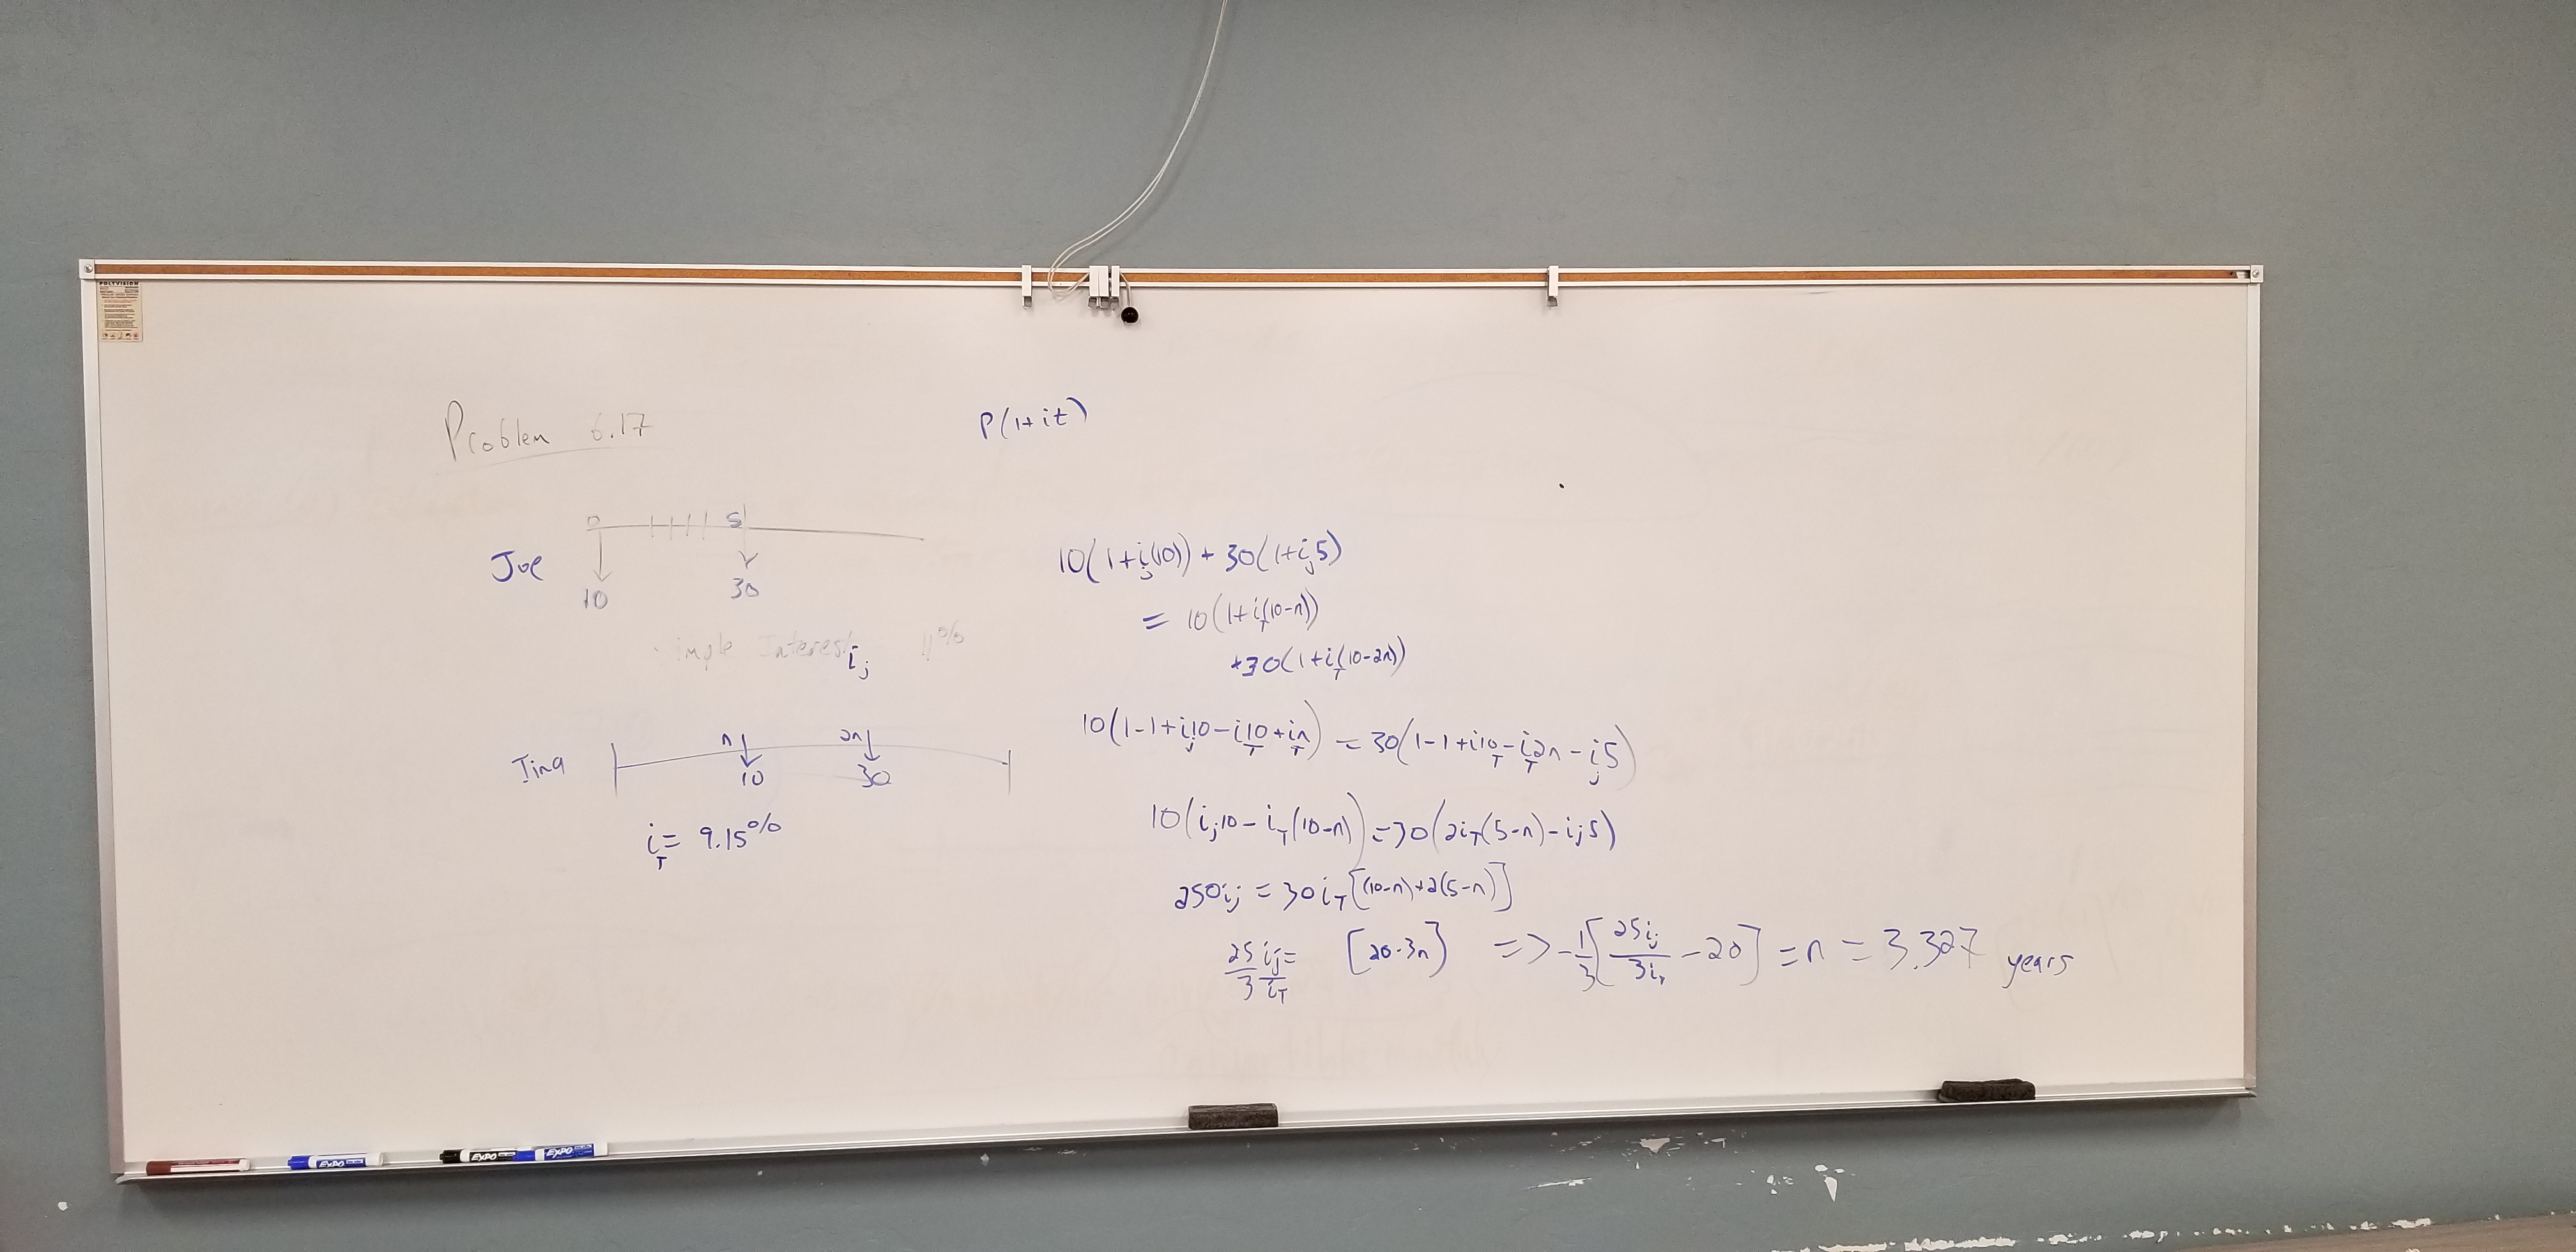 POLYVISION
Problem 6.17
P(1+it)
0 5
Joe
10 30
imple Interest i_j 11%
Tina
n 2n
10 30
i_T = 9.15%
10(1+i_j(10)) + 30(1+i_j5)
= 10(1+i_T(10-n))
+30(1+i_T(10-2n))
10(1-1+i_j10-i_T10+i_Tn) = 30(1-1+i_T10-i_T2n-i_j5)
10(i_j10-i_T(10-n)) = 30(2i_T(5-n)-i_j5)
250i_j = 30i_T[(10-n)+2(5-n)]
25/3 i_j/i_T = [20-3n] => -1/3[25i_j/3i_T - 20] = n = 3.327 years
EXPO
EXPO
EXPO